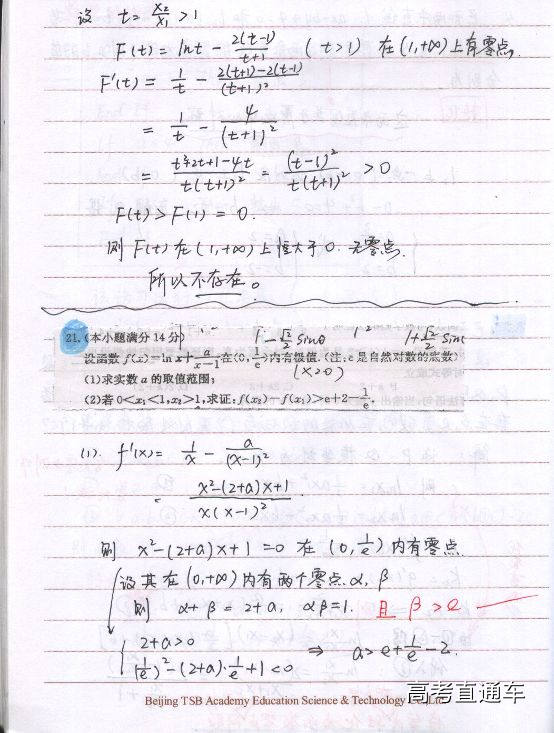 设 t = x₂/x₁ > 1
F(t) = lnt - 2(t-1)/(t+1) (t>1) 在(1,+∞)上有零点.
F'(t) = 1/t - (2(t+1)-2(t-1))/(t+1)²
= 1/t - 4/(t+1)²
= (t²+2t+1-4t)/(t(t+1)²) = (t-1)²/(t(t+1)²) > 0
F(t) > F(1) = 0.
则 F(t) 在 (1,+∞) 上恒大于 0. 无零点.
所以不存在。
21. (本小题满分 14 分) 1-√2/2 sinθ 1+√2/2 sinθ
设函数 f(x)=ln x+a/(x-1)在(0,1/e)内有极值. (注:e 是自然对数的底数)
(1)求实数 a 的取值范围; (x>0)
(2)若 0<x₁<1,x₂>1,求证:f(x₂)-f(x₁)>e+2-1/e.
(1). f'(x) = 1/x - a/(x-1)²
= (x²-(2+a)x+1)/(x(x-1)²)
则 x²-(2+a)x+1=0 在 (0,1/e) 内有零点
设其在 (0,+∞) 内有两个零点 α, β
则 α+β = 2+a, αβ=1. 且 β>e
{ 2+a>0
(1/e)²-(2+a)·1/e+1<0 ⇒ a>e+1/e-2.
Beijing TSB Academy Education Science & Technology Co.,Ltd
高考直通车